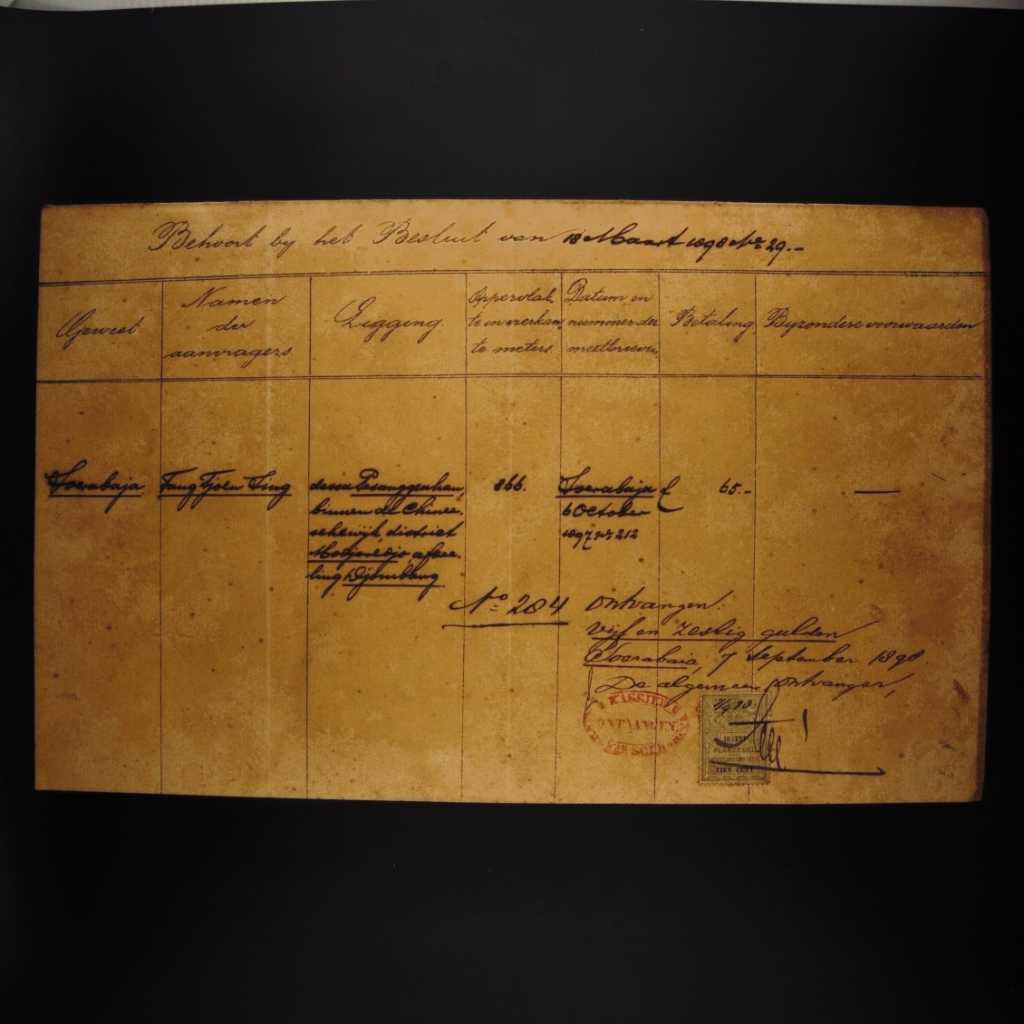 Behoort bij het Besluit van 18 Maart 1898 No 29.-
Gewest
Namen
der
aanvragers
Ligging
Oppervlak
te in vierkan
te meters
Datum en
nummer der
meetbrieven
Betaling
Byzondere voorwaarden
Soerabaja
Tjoen
dessa
binnen de Chinee-
sche wijk, district
Modjoredjo, afdee-
ling Djombang
866.
Soerabaja
6 October
1897 No 212
f 65.-
—
No 204
Ontvangen:
vijf en zestig gulden
Soerabaia, 7 September 1898.
De algemeene ontvanger,
ONTVANGEN
7/9 98.
TIEN CENT